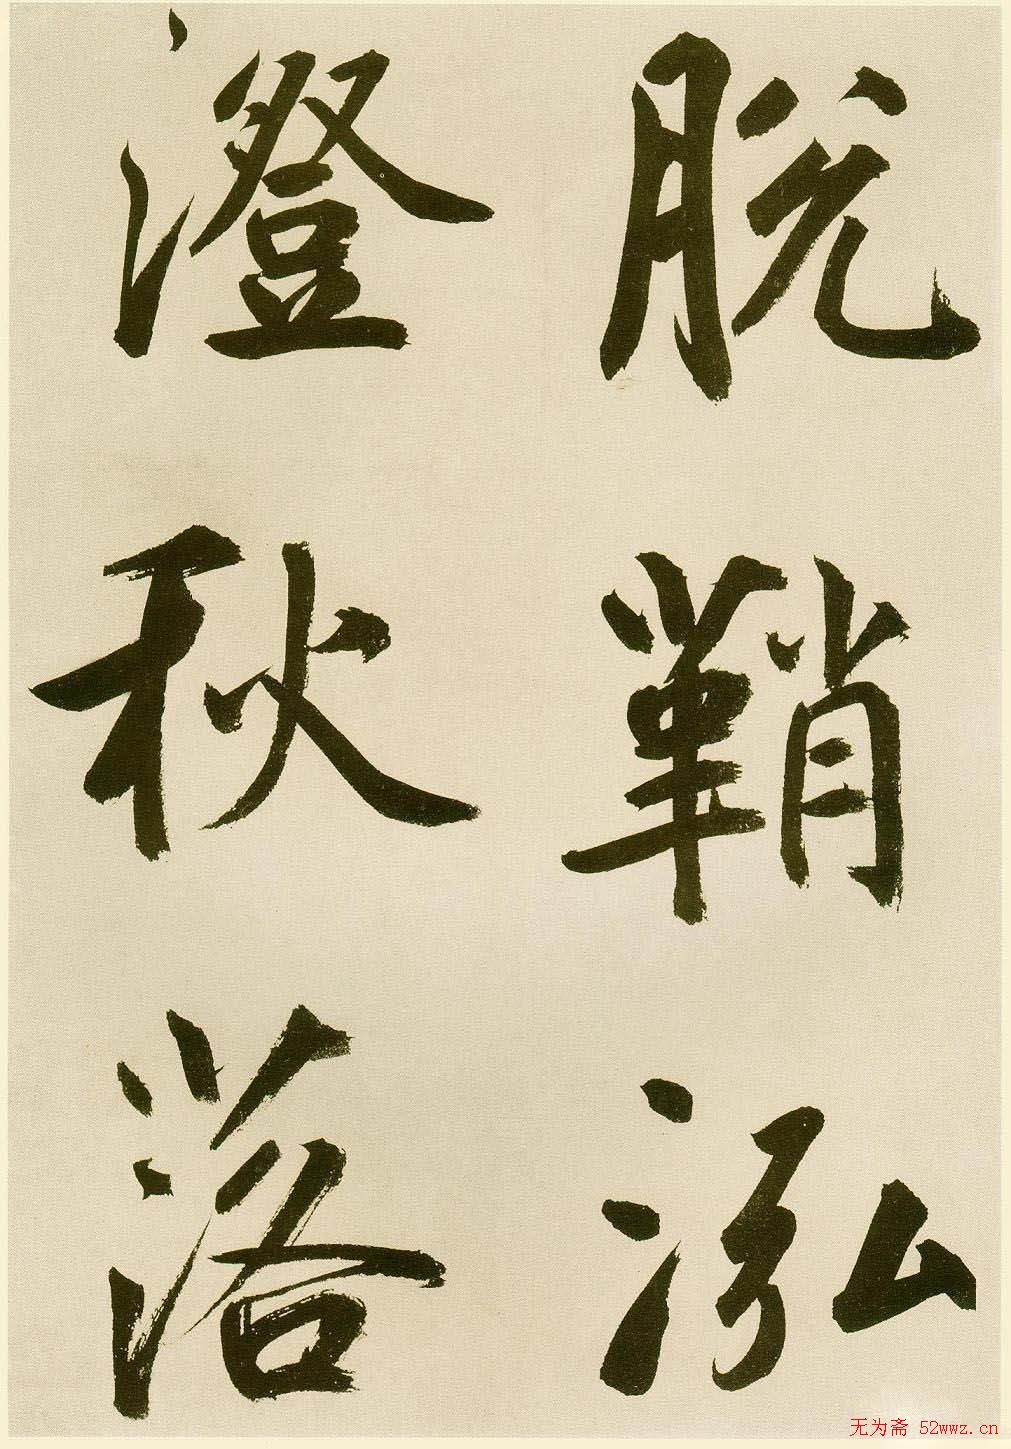 脱鞘泓
澄秋落
无为斋 52wwz.cn